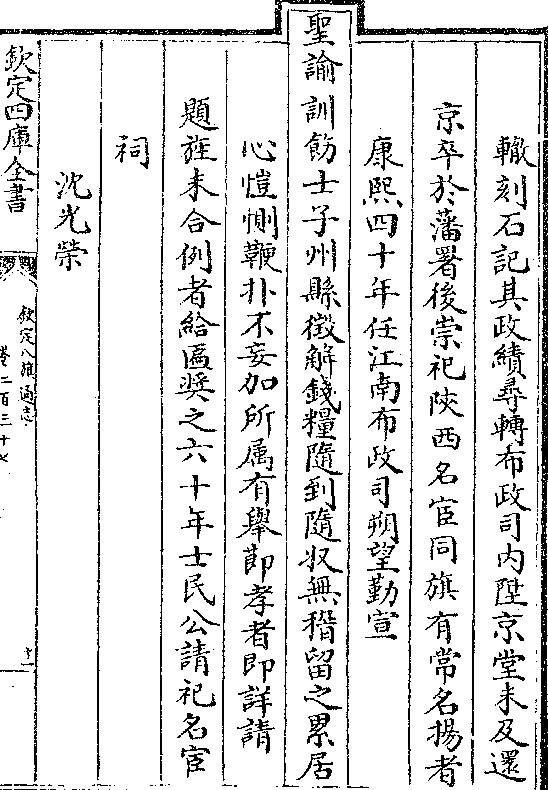 轍刻石記其政績尋轉布政司内陞京堂未及還
京卒於藩署後崇祀陜西名宦同旗有常名揚者
康熙四十年任江南布政司朔望勤宣
聖諭訓飭士子州縣徵解錢糧隨到隨收無稽留之累居
心愷惻鞭扑不妄加所属有舉莭孝者即詳請
題旌未合例者給匾奬之六十年士民公請祀名宦
祠
沈光榮
欽定四庫全書
欽定八旗通志
卷二百三十七
十一